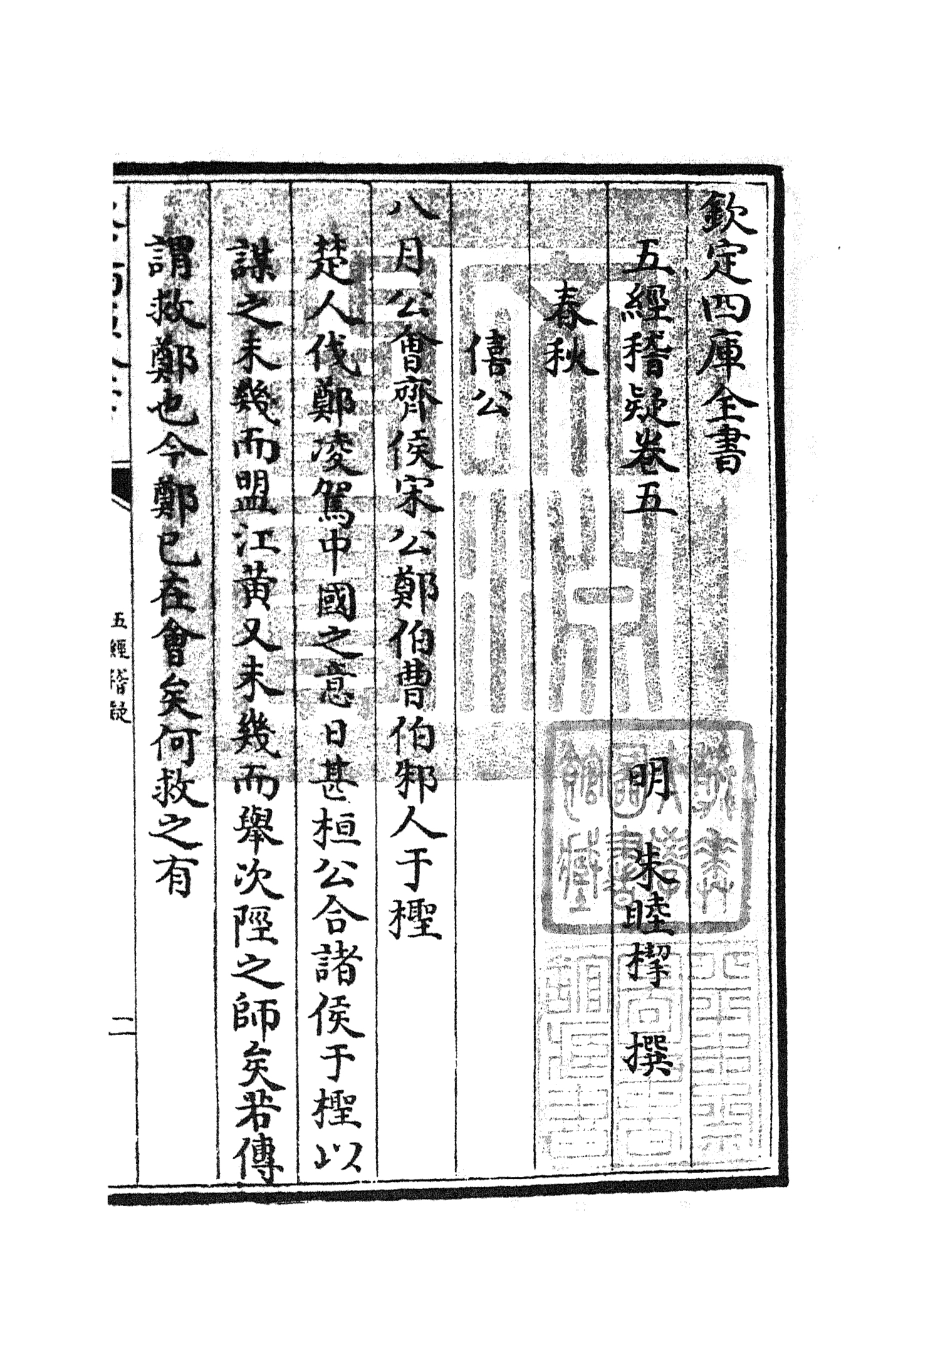 欽定四庫全書
五經稽疑卷五
明 朱睦㮮 撰
春秋
僖公
八月公會齊侯宋公鄭伯曹伯邾人于檉
楚人伐鄭凌駕中國之意日甚桓公合諸侯于檉以
謀之未幾而盟江黃又未幾而舉次陘之師矣若傳
謂救鄭也今鄭已在會矣何救之有
五經稽疑
二